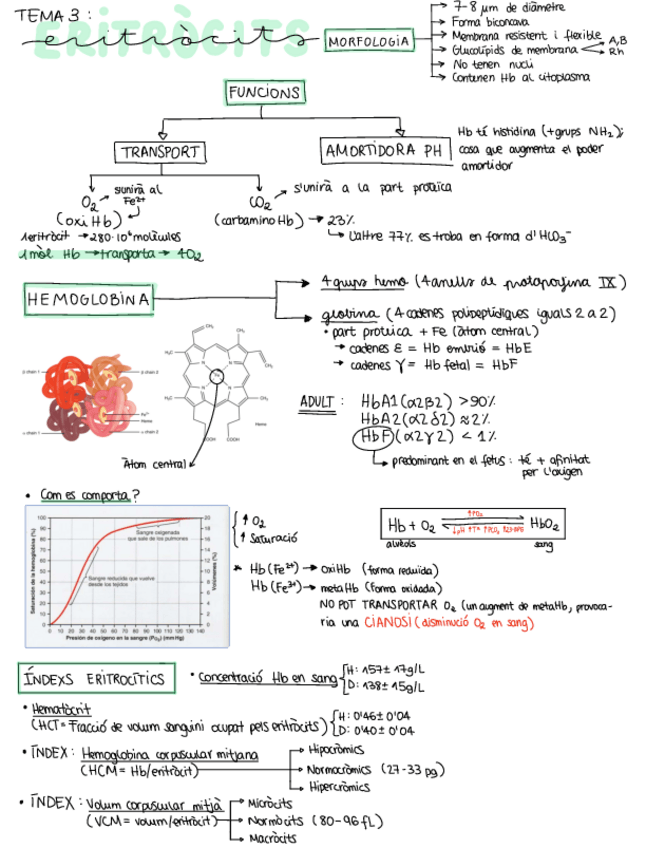 TEMA 3:
ERITRÒCITS
eritròcits
MORFOLOGIA
7-8 μm de diàmetre
Forma biconcava
Membrana resistent i flexible
Glucolípids de membrana
A,B
Rh
No tenen nucli
Contenen Hb al citoplasma
FUNCIONS
TRANSPORT
AMORTIDORA PH
Hb té histidina (+grups NH₂);
cosa que augmenta el poder
amortidor
O₂ s'unirà al Fe²⁺
(oxiHb)
1 eritròcit → 280·10⁶ molècules
1 mol Hb → transporta → 4O₂
CO₂ → s'unirà a la part proteica
(carbaminoHb) → 23%
L'altre 77% es troba en forma d'HCO₃⁻
HEMOGLOBINA
4 grups hemo (4 anells de protoporfina IX)
globina (4 cadenes polipeptídiques iguals 2 a 2)
• part proteica + Fe (àtom central)
→ cadenes ε = Hb embrió = HbE
→ cadenes γ = Hb fetal = HbF
β chain 1
β chain 2
Fe²⁺
Heme
α chain 1
α chain 2
CH₂
CH₃
H₃C
CH₂
N
N
Fe
N
N
H₃C
CH₃
COOH
COOH
Heme
Àtom central
ADULT: HbA1 (α2β2) >90%
HbA2 (α2δ2) ≈2%
HbF (α2γ2) < 1%
predominant en el fetus: té + afinitat
per l'oxigen
• Com es comporta?
Saturación de la hemoglobina (%)
100
90
80
70
60
50
40
30
20
10
0
20
18
16
14
12
10
8
6
4
2
0
Volúmenes (%)
Sangre oxigenada
que sale de los pulmones
Sangre reducida que vuelve
desde los tejidos
0 10 20 30 40 50 60 70 80 90 100 110 120 130 140
Presión de oxígeno en la sangre (PO₂) (mm Hg)
↑ O₂
↑ Saturació
Hb + O₂
↑PO₂
↓pH ↑Tª ↑PCO₂ ↑2,3-DPG
HbO₂
alvèols
sang
* Hb (Fe²⁺) → oxiHb (forma reduïda)
Hb (Fe³⁺) → metaHb (forma oxidada)
NO POT TRANSPORTAR O₂ (un augment de metaHb, provoca-
ria una CIANOSI (disminució O₂ en sang)
ÍNDEXS ERITROCÍTICS
• Concentració Hb en sang
H: 157± 17g/L
D: 138± 15g/L
• Hematòcrit
(HCT = Fracció de volum sanguini ocupat pels eritròcits)
H: 0'46± 0'04
D: 0'40± 0'04
• ÍNDEX: Hemoglobina corpuscular mitjana
(HCM = Hb/eritròcit)
Hipocròmics
Normocròmics (27-33 pg)
Hipercròmics
• ÍNDEX: Volum corpuscular mitjà
(VCM = volum/eritròcit)
Micròcits
Normòcits (80-96 fL)
Macròcits